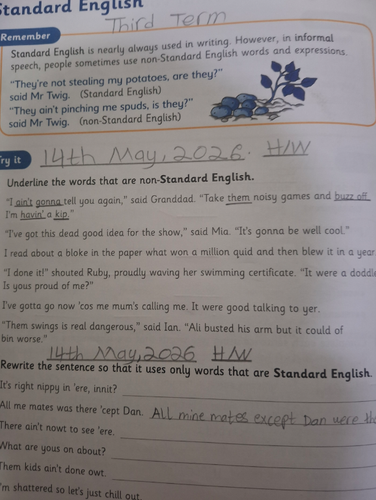 Standard English
Third Term
Remember
Standard English is nearly always used in writing. However, in informal
speech, people sometimes use non-Standard English words and expressions.
"They're not stealing my potatoes, are they?"
said Mr Twig. (Standard English)
"They ain't pinching me spuds, is they?"
said Mr Twig. (non-Standard English)
Try it
14th May, 2026. H/W
Underline the words that are non-Standard English.
"I ain't gonna tell you again," said Granddad. "Take them noisy games and buzz off.
I'm havin' a kip."
"I've got this dead good idea for the show," said Mia. "It's gonna be well cool."
I read about a bloke in the paper what won a million quid and then blew it in a year.
"I done it!" shouted Ruby, proudly waving her swimming certificate. "It were a doddle.
Is yous proud of me?"
I've gotta go now 'cos me mum's calling me. It were good talking to yer.
"Them swings is real dangerous," said Ian. "Ali busted his arm but it could of
bin worse."
14th May, 2026 H/W
Rewrite the sentence so that it uses only words that are Standard English.
It's right nippy in 'ere, innit?
All me mates was there 'cept Dan. All mine mates except Dan were
There ain't nowt to see 'ere.
What are yous on about?
Them kids ain't done owt.
I'm shattered so let's just chill out.